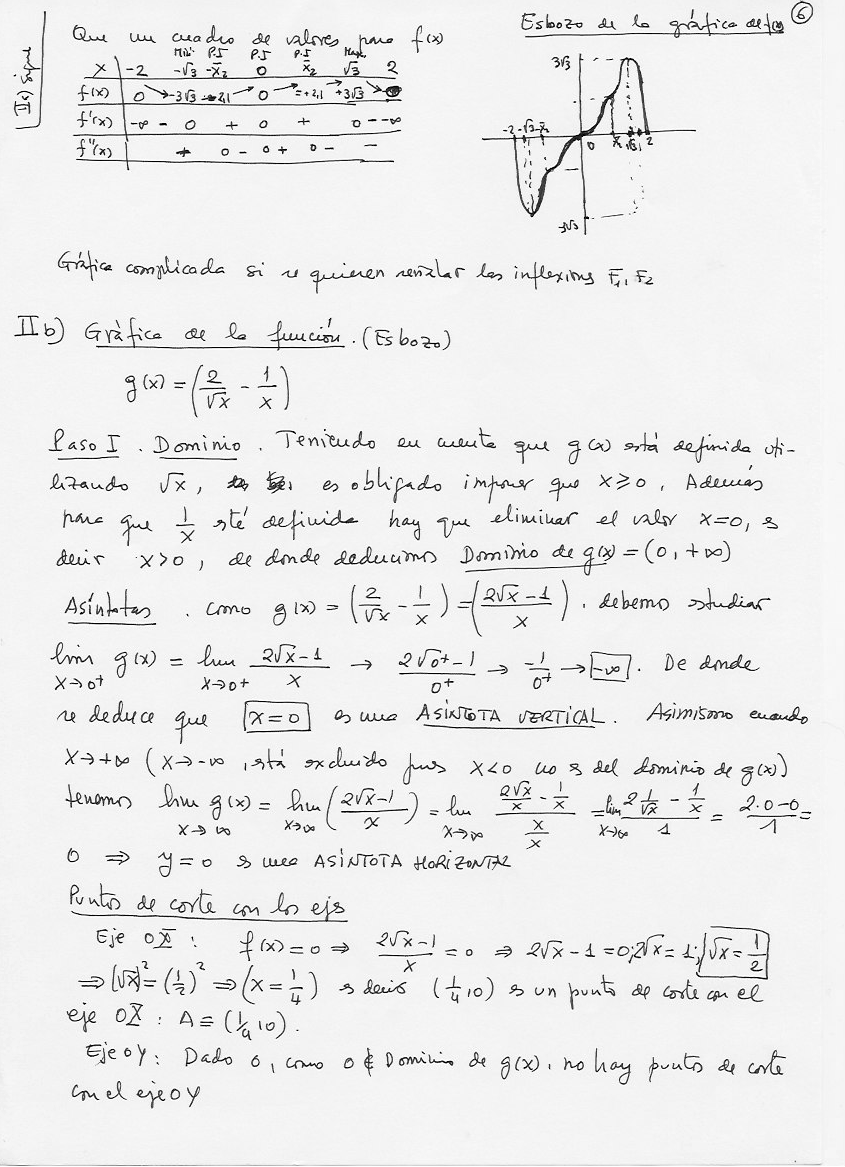 ⑥
IIa) sigue
Que un cuadro de valores para f(x)
Mín. P.I P.I P.I Max.
X -2 -√3 -x̄₂ 0 x̄₂ √3 2
f(x) 0 -3√3 -2,1 0 =+2,1 +3√3
f'(x) -∞ - 0 + 0 + 0 - -∞
f''(x) + 0 - 0 + 0 - -
Esbozo de la gráfica de f(x)
3√3
-2 -√3 -x̄₂ 0 x̄₂ √3 2
-3√3
Gráfica complicada si se quieren señalar las inflexiones F₁, F₂
IIb) Gràfica de la función. (Esbozo)
g(x) = (2/√x - 1/x)
Paso I. Dominio. Teniendo en cuenta que g(x) está definida uti-
lizando √x, es obligado imponer que x⩾0. Además
para que 1/x esté definida hay que eliminar el valor x=0, es
decir x>0, de donde deducimos Dominio de g(x) = (0, +∞)
Asíntotas. Como g(x) = (2/√x - 1/x) = (2√x-1/x). debemos estudiar
lim x→0⁺ g(x) = lim x→0⁺ 2√x-1/x → 2√0⁺-1/0⁺ → -1/0⁺ → -∞. De donde
se deduce que x=0 es una ASÍNTOTA VERTICAL. Asimismo cuando
X→+∞ (X→-∞, está excluido pues X<0 no es del dominio de g(x))
tenemos lim x→∞ g(x) = lim x→∞ (2√x-1/x) = lim x→∞ (2√x/x - 1/x)/(x/x) = lim x→∞ (2 1/√x - 1/x)/1 = 2·0-0/1 =
0 ⇒ y=0 es una ASÍNTOTA HORIZONTAL
Puntos de corte con los ejes
Eje OX: f(x)=0 ⇒ 2√x-1/x = 0 ⇒ 2√x-1=0; 2√x=1; √x=1/2
⇒ (√x)²=(1/2)² ⇒ (x=1/4) es decir (1/4,0) es un punto de corte con el
eje OX: A≡(1/4,0).
Eje OY: Dado 0, como 0∉Dominio de g(x), no hay puntos de corte
con el eje OY